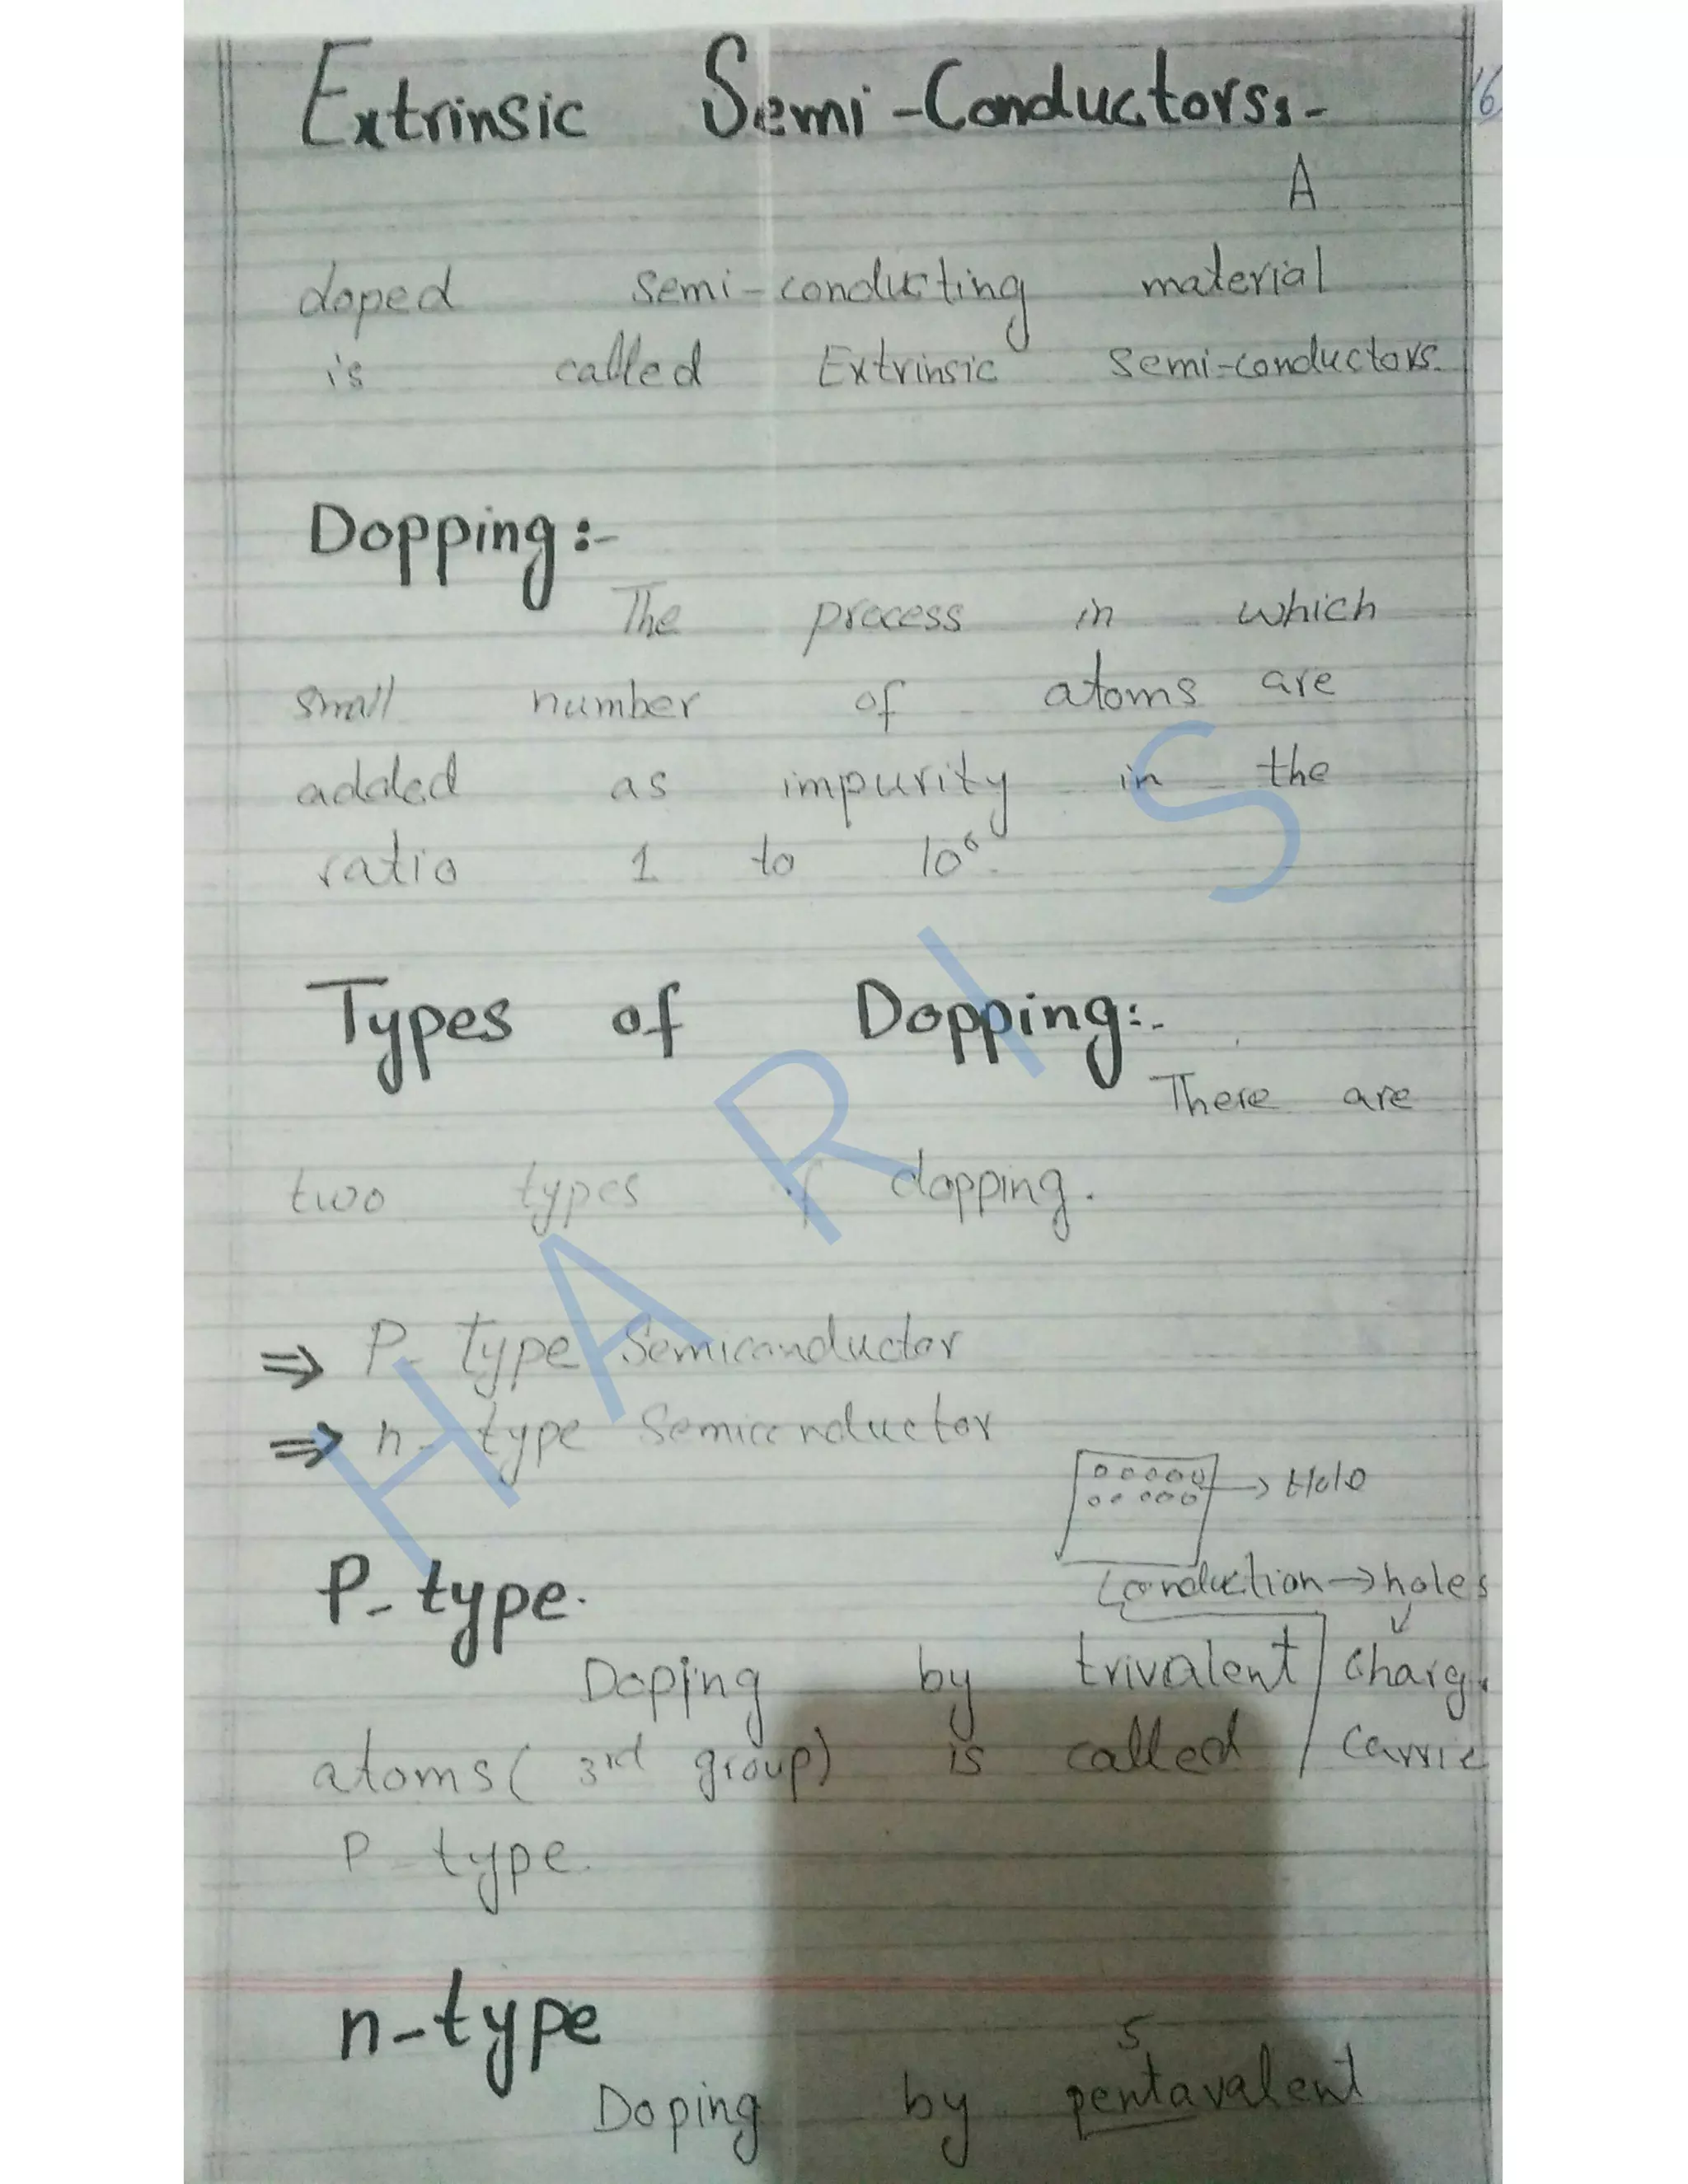 Extrinsic Semi-Conductors:-
16
A
doped semi-conducting material
is called Extrinsic Semi-conductors.
Dopping:-
The process in which
small number of atoms are
added as impurity in the
ratio 1 to 10⁶.
Types of Dopping:-
There are
two types of dopping.
⇒ P-type Semiconductor
⇒ n-type Semiconductor
→ Hole
Conduction → holes
P-type.
Doping by trivalent
charg.
atoms( 3rd group) is called
carrie
P-type.
n-type
5
Doping by pentavalent
HARIS